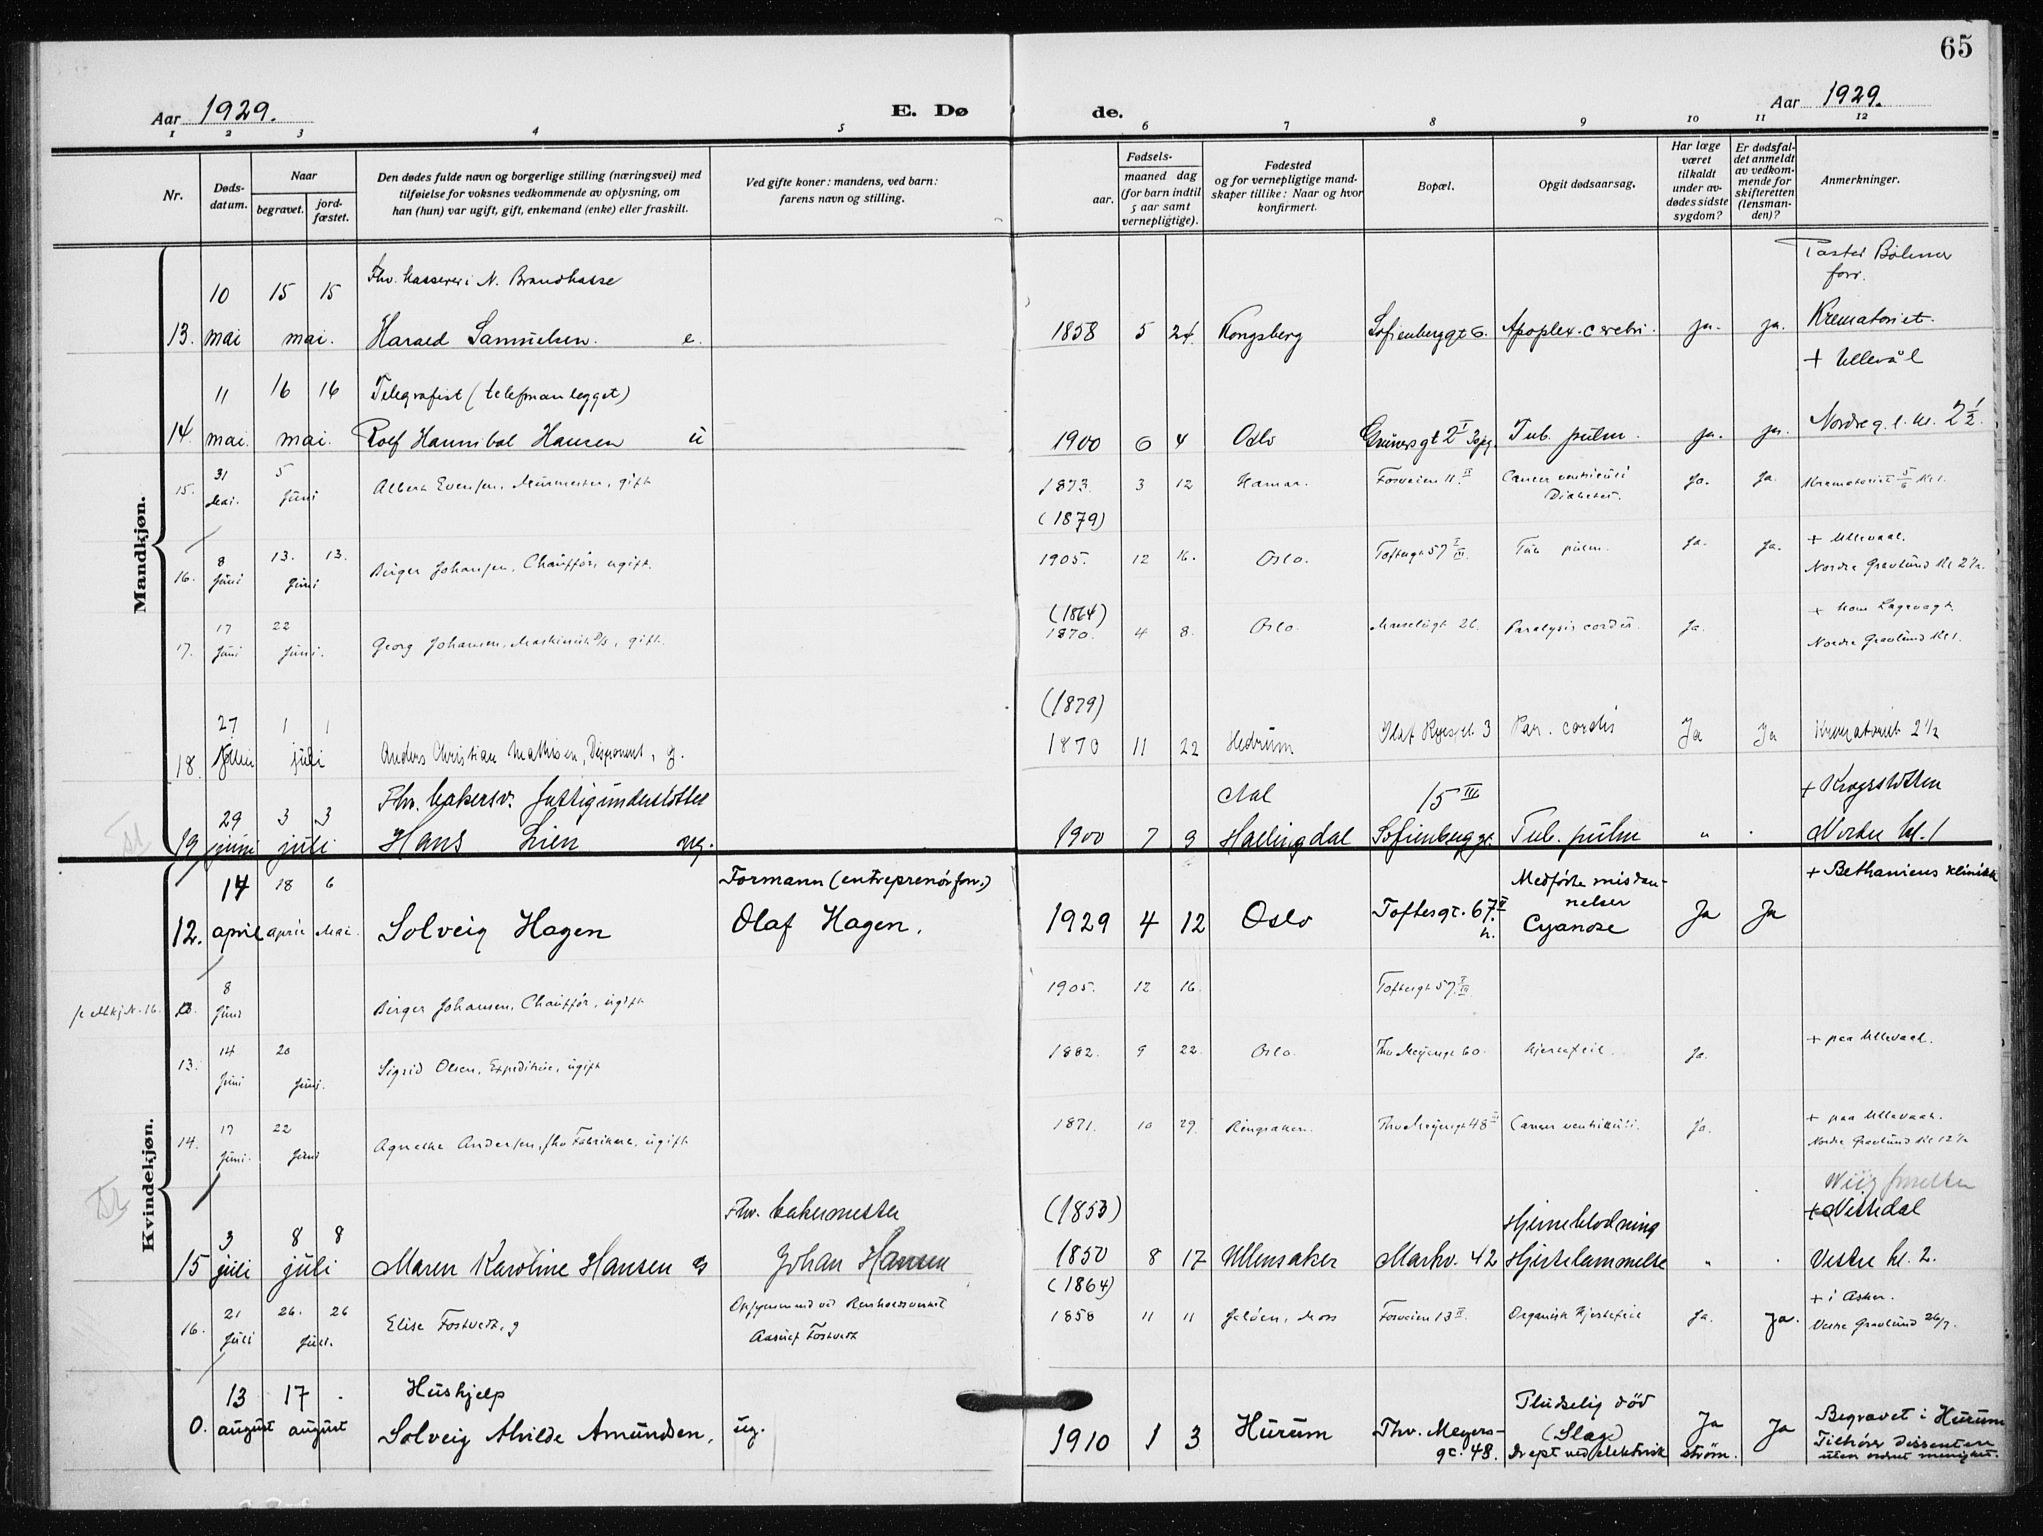 65
Aar 1929.
E. Døde.
Aar 1929.
1 2 3 4 5 6 7 8 9 10 11 12
Nr.
Døds-
datum.
Naar
begravet.
jord-
fæstet.
Den dødes fulde navn og borgerlige stilling (næringsvei) med
tilføielse for voksnes vedkommende av oplysning, om
han (hun) var ugift, gift, enkemand (enke) eller fraskilt.
Ved gifte koner: mandens, ved barn:
farens navn og stilling.
Fødsels-
aar.
maaned dag
(for barn indtil
5 aar samt
vernepligtige).
Fødested
og for vernepligtige mand-
skaper tillike: Naar og hvor
konfirmert.
Bopæl.
Opgit dødsaarsag.
Har læge
været
tilkaldt
under av-
dødes sidste
sygdom?
Er dødsfal-
det anmeldt
av vedkom-
mende for
skifteretten
(lensman-
den)?
Anmerkninger.
Mandkjøn.
10 15 15 Fhv. kasserer i N. Brandkasse
forr.
13. mai mai. Harald Samuelsen. e. 1858 5 24. Kongsberg Sofienberggt 6. Apoplex. cerebri. ja. ja. Krematoriet.
+ Ullevål
11 16 16 Telegrafist (telefonanlegget)
14. mai. mai. Rolf Hannibal Hansen u 1900 6 4 Oslo Tub. pulm. ja. ja. Nordre g. l. kl. 2 1/2.
31 5
15. Mai. Juni Albert Evensen, Murmester, gift 1873. 3 12 Hamar. Fosveien 11. II Cancer ventriculi Ja. Ja. Krematoriet 5/6 kl 1.
Diabetes.
(1879)
8 13. 13. + Ullevaal.
16. Juni Juni Birger Johansen, Chauffør, ugift. 1905. 12 16. Oslo. Toftesgt 57 I III. Tub pulm. Ja. Ja. Nordre Gravlund kl 2 1/2.
(1864)
17 22
17. Juni Juni. Georg Johansen, Maskinist D/S, gift. 1870. 4 8. Oslo. Paralysis cordis. Ja. Nordre Gravlund kl 1.
(1879)
27 1 1
18. juli Anders Christian Mathisen, Disponent, g. 1870 11 22 Hedrum Olaf Ryespl. 3 Par. cordis Ja Ja Krematoriet 2 1/2
Fhv. bakersv. fattigunderstøttet Aal 15 III + Krogstøtten
29 3 3
19 juni juli Hans Lien ug. 1900 7 9 Hallingdal Sofienberggt. Tub. pulm " . Nordre kl. 1
Kvindekjøn.
14 18 6 Formann (entreprenørforr.) Medfødte misdan-
nelser + Bethaniens klinikk
12. april april Mai. Solveig Hagen Olaf Hagen. 1929 4 12 Oslo Toftesgt. 67. II h. Cyanose Ja Ja
8
fr Mkj N. 16. Juni Birger Johansen, Chauffør, ugift 1905. 12 16. Toftesgt 57. I III.
14 20 + paa Ullevaal.
13. Juni Juni. Sigrid Olsen, Expeditrise, ugift 1882. 9 22. Oslo. Thv Meyersgt 60. Hjertefeil. Ja.
17 22 + paa Ullevaal.
14. Juni. Juni Agnethe Andersen, fhv Fabrikarb, ugift 1871. 10 29. Ringsaker. Thv Meyersgt 48 II Cancer ventriculi. Ja. Nordre Gravlund kl 12 1/2
3 8 8 Fhv. bakermester (1853) Hjerneblodning + Nittedal
15 juli juli Maren Karoline Hansen g Johan Hansen 1850 8 17 Ullensaker Markv. 42 Hjertelammelse " . Vestre kl. 2.
(1864)
21 26. 26 Opsynsmand ved Renholdsverket + i Asker.
16. Juli Juli. Elise Fostvedt, g Fostvedt 1858 11 11 Jeløen, Moss Fosveien 13 II. Organisk Hjertefeil Ja. Ja. Vestre Gravlund 26/7.
13 17 . Hushjelp Pludselig død
0. august august Solveig Alvilde Amundsen, ug. 1910 1 3 Hurum Thv. Meyers-
gt. 48. (Slag)
Drept ved elektrisk strøm. Ja Ja Begravet i Hurum
Tilhører dissentere
uten ordnet menighet.